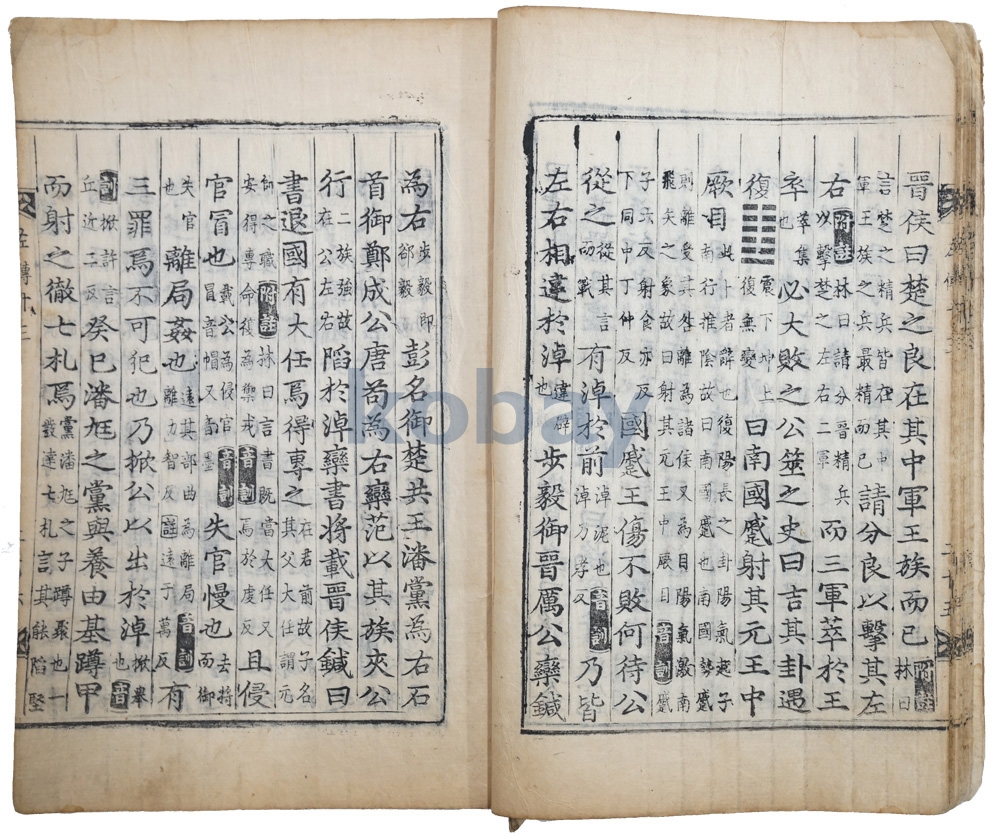 晉侯曰楚之良在其中軍王族而已附註林曰
言楚之精兵皆在其中軍王族之兵最精而已請分良以擊其左
右附註林曰請分晉精兵以擊楚之左右二軍而三軍萃於王
卒萃集也必大敗之公筮之史曰吉其卦遇
復䷗震下坤上復無變曰南國蹙射其元王中
厥目此卜者辭也復陽長之卦陽氣起子南行推陰故曰南國蹙也南國勢蹙
則離受其咎離為諸侯又為目陽氣激南飛矢之象故曰射其元王中厥目音訓蹙
子六反射食亦反下同中丁仲反國蹙王傷不敗何待公
從之從其言而戰有淖於前淖泥也音訓淖乃孝反乃皆
左右相違於淖違辟也步毅御晉厲公欒鍼
為右步毅即郤毅彭名御楚共王潘黨為右石
首御鄭成公唐苟為右欒范以其族夾公
行二族強故在公左右陷於淖欒書將載晉侯鍼曰
書退國有大任焉得專之在君前故子名其父大任謂元
帥之職附註林曰言書既當大任又安得專命復為御戎音訓焉於虔反且侵
官冒也載公為侵官音訓冒音帽又音墨失官慢也去將而御
失官也離局姦也遠其部曲為離局音訓離力智反註遠于萬反有
三罪焉不可犯也乃掀公以出於淖掀舉也音
訓掀許言丘近二反癸巳潘尫之黨與養由基蹲甲
而射之徹七札焉黨潘尫之子蹲聚也一發達七札言其能陷堅
左傳十三
kobay